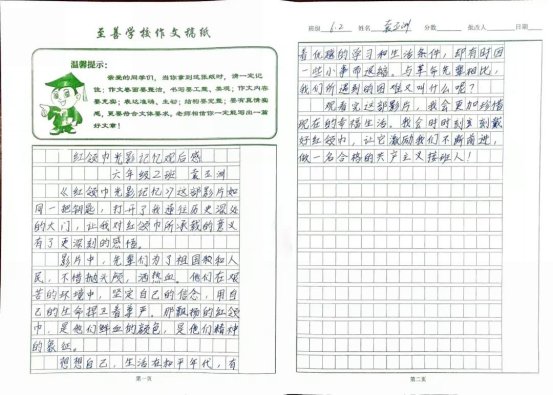 至善学校作文稿纸
温馨提示：
亲爱的同学们，当你拿到这张纸时，请一定记
住：作文卷面要整洁，书写要工整、美观；作文内容
要充实；表达准确、生动；结构要完整；要有真情实
感，更要符合文体要求。老师相信你一定能写出一篇
好文章！
红领巾光影记忆观后感
六年级二班 袁玉洲
《红领巾光影记忆》这部影片如
同一把钥匙，打开了我通往历史深处
的大门，让我对红领巾所承载的意义
有了更深刻的感悟。
影片中，先辈们为了祖国和人
民，不惜抛头颅，洒热血。他们在艰
苦的环境中，坚定自己的信念，用自
己的生命捍卫着尊严。那飘扬的红领
巾，是他们鲜血的颜色，是他们精神
的象征。
想想自己，生活在和平年代，有
第一页
班级 6.2 姓名 袁玉洲 分数 批改人 日期
着优越的学习和生活条件，却有时因
一些小事而退缩。与革命先辈相比，
我们所遇到的困难又叫什么呢？
观看完这部影片，我会更加珍惜
现在的幸福生活。我会时时刻刻戴
好红领巾，让它激励我们不断前进，
做一名合格的共产主义接班人！
第二页